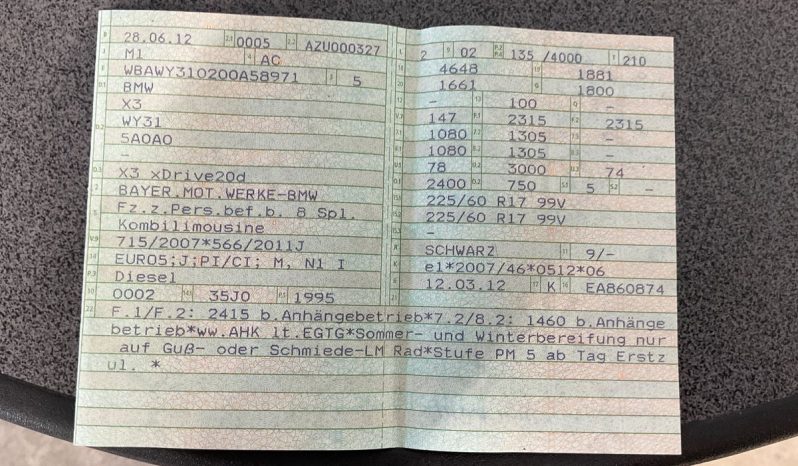 B 28.06.12 2.1 0005 2.2 AZU000327
J M1 4 AC
E WBAWY310200A58971 3 5
D.1 BMW
X3
D.2 WY31
5A0A0
–
D.3 X3 xDrive20d
2 BAYER.MOT.WERKE-BMW
5 Fz.z.Pers.bef.b. 8 Spl.
Kombilimousine
V.9 715/2007*566/2011J
14 EURO5;J;PI/CI; M, N1 I
P.3 Diesel
10 0002 14.1 35J0 P.1 1995
L 2 9 02 P.2 P.4 135 /4000 T 210
18 4648 19 1881
20 1661 G 1800
12 – 13 100 Q –
V.7 147 F.1 2315 F.2 2315
7.1 1080 7.2 1305 7.3 –
8.1 1080 8.2 1305 8.3 –
U.1 78 U.2 3000 U.3 74
O.1 2400 O.2 750 S.1 5 S.2 –
15.1 225/60 R17 99V
15.2 225/60 R17 99V
15.3 –
R SCHWARZ 11 9/–
K e1*2007/46*0512*06
6 12.03.12 17 K 16 EA860874
21
22 F.1/F.2: 2415 b.Anhängebetrieb*7.2/8.2: 1460 b.Anhänge
betrieb*ww.AHK lt.EGTG*Sommer- und Winterbereifung nur
auf Guß- oder Schmiede-LM Rad*Stufe PM 5 ab Tag Erstz
ul. *